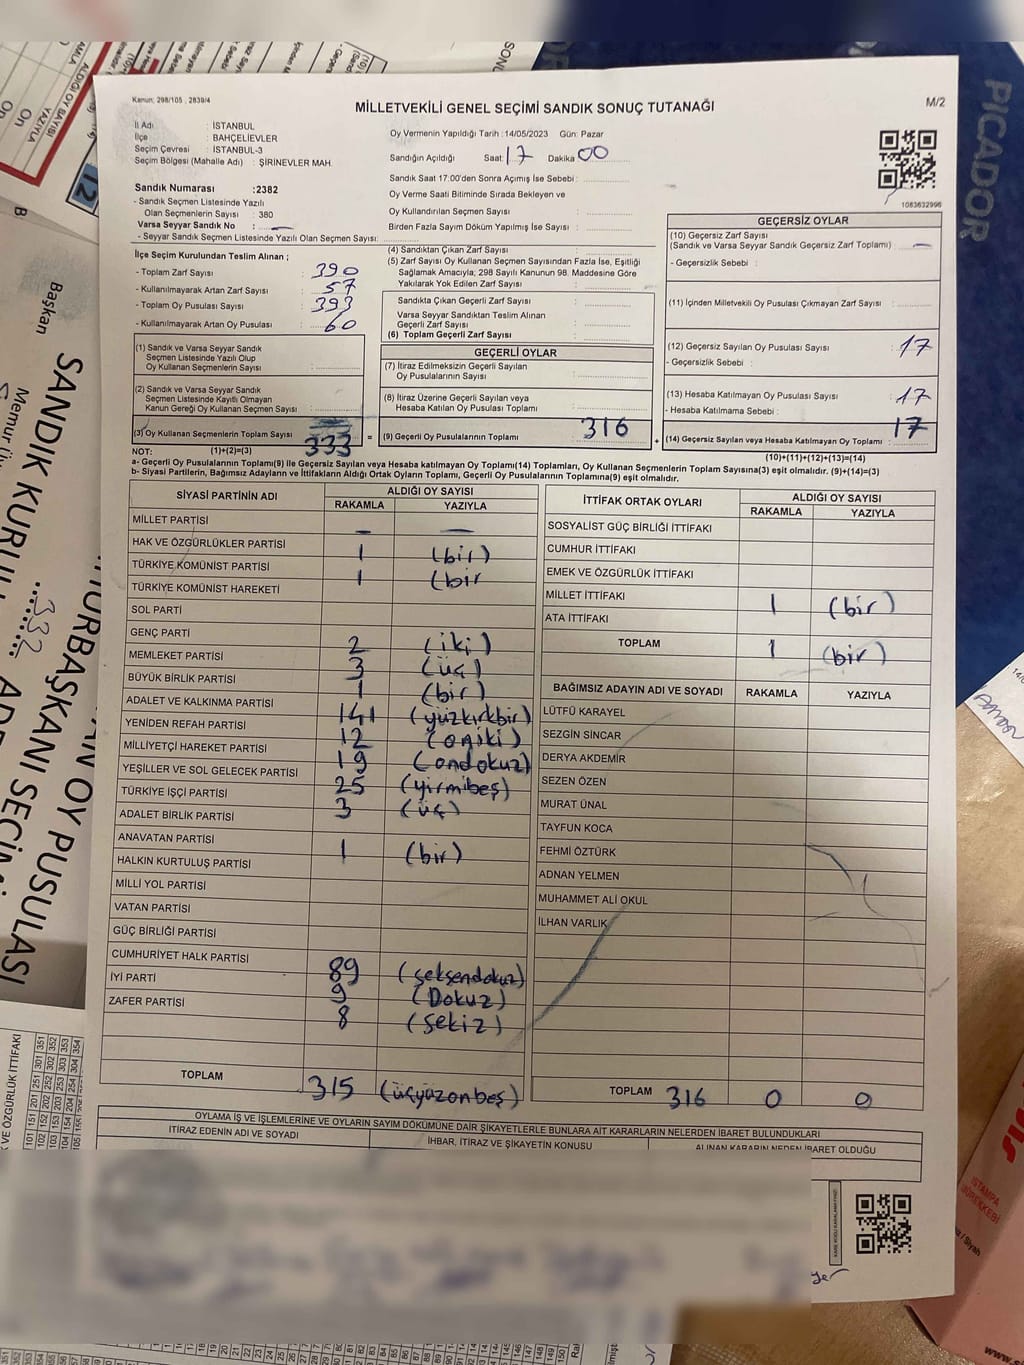 Kanun: 298/105 , 2839/4
MİLLETVEKİLİ GENEL SEÇİMİ SANDIK SONUÇ TUTANAĞI
M/2
İl Adı : İSTANBUL
İlçe : BAHÇELİEVLER
Seçim Çevresi : İSTANBUL-3
Seçim Bölgesi (Mahalle Adı) : ŞİRİNEVLER MAH.
Oy Vermenin Yapıldığı Tarih :14/05/2023 Gün: Pazar
Sandığın Açıldığı Saat: 17 Dakika 00
Sandık Saat 17:00'den Sonra Açımış İse Sebebi :
Oy Verme Saati Bitiminde Sırada Bekleyen ve
Oy Kullandırılan Seçmen Sayısı :
Birden Fazla Sayım Döküm Yapılmış İse Sayısı :
1083632996
Sandık Numarası :2382
- Sandık Seçmen Listesinde Yazılı
Olan Seçmenlerin Sayısı : 380
Varsa Seyyar Sandık No : -
- Seyyar Sandık Seçmen Listesinde Yazılı Olan Seçmen Sayısı:
İlçe Seçim Kurulundan Teslim Alınan ;
- Toplam Zarf Sayısı : 390
- Kullanılmayarak Artan Zarf Sayısı : 57
- Toplam Oy Pusulası Sayısı : 393
- Kullanılmayarak Artan Oy Pusulası : 60
(1) Sandık ve Varsa Seyyar Sandık
Seçmen Listesinde Yazılı Olup
Oy Kullanan Seçmenlerin Sayısı :
(2) Sandık ve Varsa Seyyar Sandık
Seçmen Listesinde Kayıtlı Olmayan
Kanun Gereği Oy Kullanan Seçmen Sayısı :
(3) Oy Kullanan Seçmenlerin Toplam Sayısı : 333 =
(4) Sandıktan Çıkan Zarf Sayısı :
(5) Zarf Sayısı Oy Kullanan Seçmen Sayısından Fazla İse, Eşitliği
Sağlamak Amacıyla; 298 Sayılı Kanunun 98. Maddesine Göre
Yakılarak Yok Edilen Zarf Sayısı :
Sandıkta Çıkan Geçerli Zarf Sayısı :
Varsa Seyyar Sandıktan Teslim Alınan
Geçerli Zarf Sayısı :
(6) Toplam Geçerli Zarf Sayısı :
GEÇERLİ OYLAR
(7) İtiraz Edilmeksizin Geçerli Sayılan
Oy Pusulalarının Sayısı :
(8) İtiraz Üzerine Geçerli Sayılan veya
Hesaba Katılan Oy Pusulası Toplamı :
(9) Geçerli Oy Pusulalarının Toplamı : 316 +
GEÇERSİZ OYLAR
(10) Geçersiz Zarf Sayısı
(Sandık ve Varsa Seyyar Sandık Geçersiz Zarf Toplamı) : -
- Geçersizlik Sebebi :
(11) İçinden Milletvekili Oy Pusulası Çıkmayan Zarf Sayısı :
(12) Geçersiz Sayılan Oy Pusulası Sayısı : 17
- Geçersizlik Sebebi :
(13) Hesaba Katılmayan Oy Pusulası Sayısı : 17
- Hesaba Katılmama Sebebi :
(14) Geçersiz Sayılan veya Hesaba Katılmayan Oy Toplamı : 17
NOT: (1)+(2)=(3)
(10)+(11)+(12)+(13)=(14)
a- Geçerli Oy Pusulalarının Toplamı(9) ile Geçersiz Sayılan veya Hesaba katılmayan Oy Toplamı(14) Toplamları, Oy Kullanan Seçmenlerin Toplam Sayısına(3) eşit olmalıdır. (9)+(14)=(3)
b- Siyasi Partilerin, Bağımsız Adayların ve İttifakların Aldığı Ortak Oyların Toplamı, Geçerli Oy Pusulalarının Toplamı(9)na eşit olmalıdır.
SİYASİ PARTİNİN ADI ALDIĞI OY SAYISI
RAKAMLA YAZIYLA
MİLLET PARTİSİ - -
HAK VE ÖZGÜRLÜKLER PARTİSİ 1 (bir)
TÜRKİYE KOMÜNİST PARTİSİ 1 (bir
TÜRKİYE KOMÜNİST HAREKETİ
SOL PARTİ
GENÇ PARTİ 2 (iki)
MEMLEKET PARTİSİ 3 (üç)
BÜYÜK BİRLİK PARTİSİ 1 (bir)
ADALET VE KALKINMA PARTİSİ 141 (yüzkırkbir)
YENİDEN REFAH PARTİSİ 12 (oniki)
MİLLİYETÇİ HAREKET PARTİSİ 19 (ondokuz)
YEŞİLLER VE SOL GELECEK PARTİSİ 25 (yirmibeş)
TÜRKİYE İŞÇİ PARTİSİ 3 (üç)
ADALET BİRLİK PARTİSİ
ANAVATAN PARTİSİ 1 (bir)
HALKIN KURTULUŞ PARTİSİ
MİLLİ YOL PARTİSİ
VATAN PARTİSİ
GÜÇ BİRLİĞİ PARTİSİ
CUMHURİYET HALK PARTİSİ 89 (seksendokuz)
İYİ PARTİ 9 (Dokuz)
ZAFER PARTİSİ 8 (sekiz)
TOPLAM 315 (üçyüzonbeş)
İTTİFAK ORTAK OYLARI ALDIĞI OY SAYISI
RAKAMLA YAZIYLA
SOSYALİST GÜÇ BİRLİĞİ İTTİFAKI
CUMHUR İTTİFAKI
EMEK VE ÖZGÜRLÜK İTTİFAKI
MİLLET İTTİFAKI 1 (bir)
ATA İTTİFAKI
TOPLAM 1 (bir)
BAĞIMSIZ ADAYIN ADI VE SOYADI RAKAMLA YAZIYLA
LÜTFÜ KARAYEL
SEZGİN SİNCAR
DERYA AKDEMİR
SEZEN ÖZEN
MURAT ÜNAL
TAYFUN KOCA
FEHMİ ÖZTÜRK
ADNAN YELMEN
MUHAMMET ALİ OKUL
İLHAN VARLIK
TOPLAM 316 0 0
OYLAMA İŞ VE İŞLEMLERİNE VE OYLARIN SAYIM DÖKÜMÜNE DAİR ŞİKAYETLERLE BUNLARA AİT KARARLARIN NELERDEN İBARET BULUNDUKLARI
İTİRAZ EDENİN ADI VE SOYADI
İHBAR, İTİRAZ VE ŞİKAYETİN KONUSU
ALINAN KARARIN NEDEN İBARET OLDUĞU
PICADOR
Başkan
SANDIK KURULU
332
OY PUSULASI
VE ÖZGÜRLÜK İTTİFAKI
ISTAMPA
MÜREKKEBİ
/ Siyah